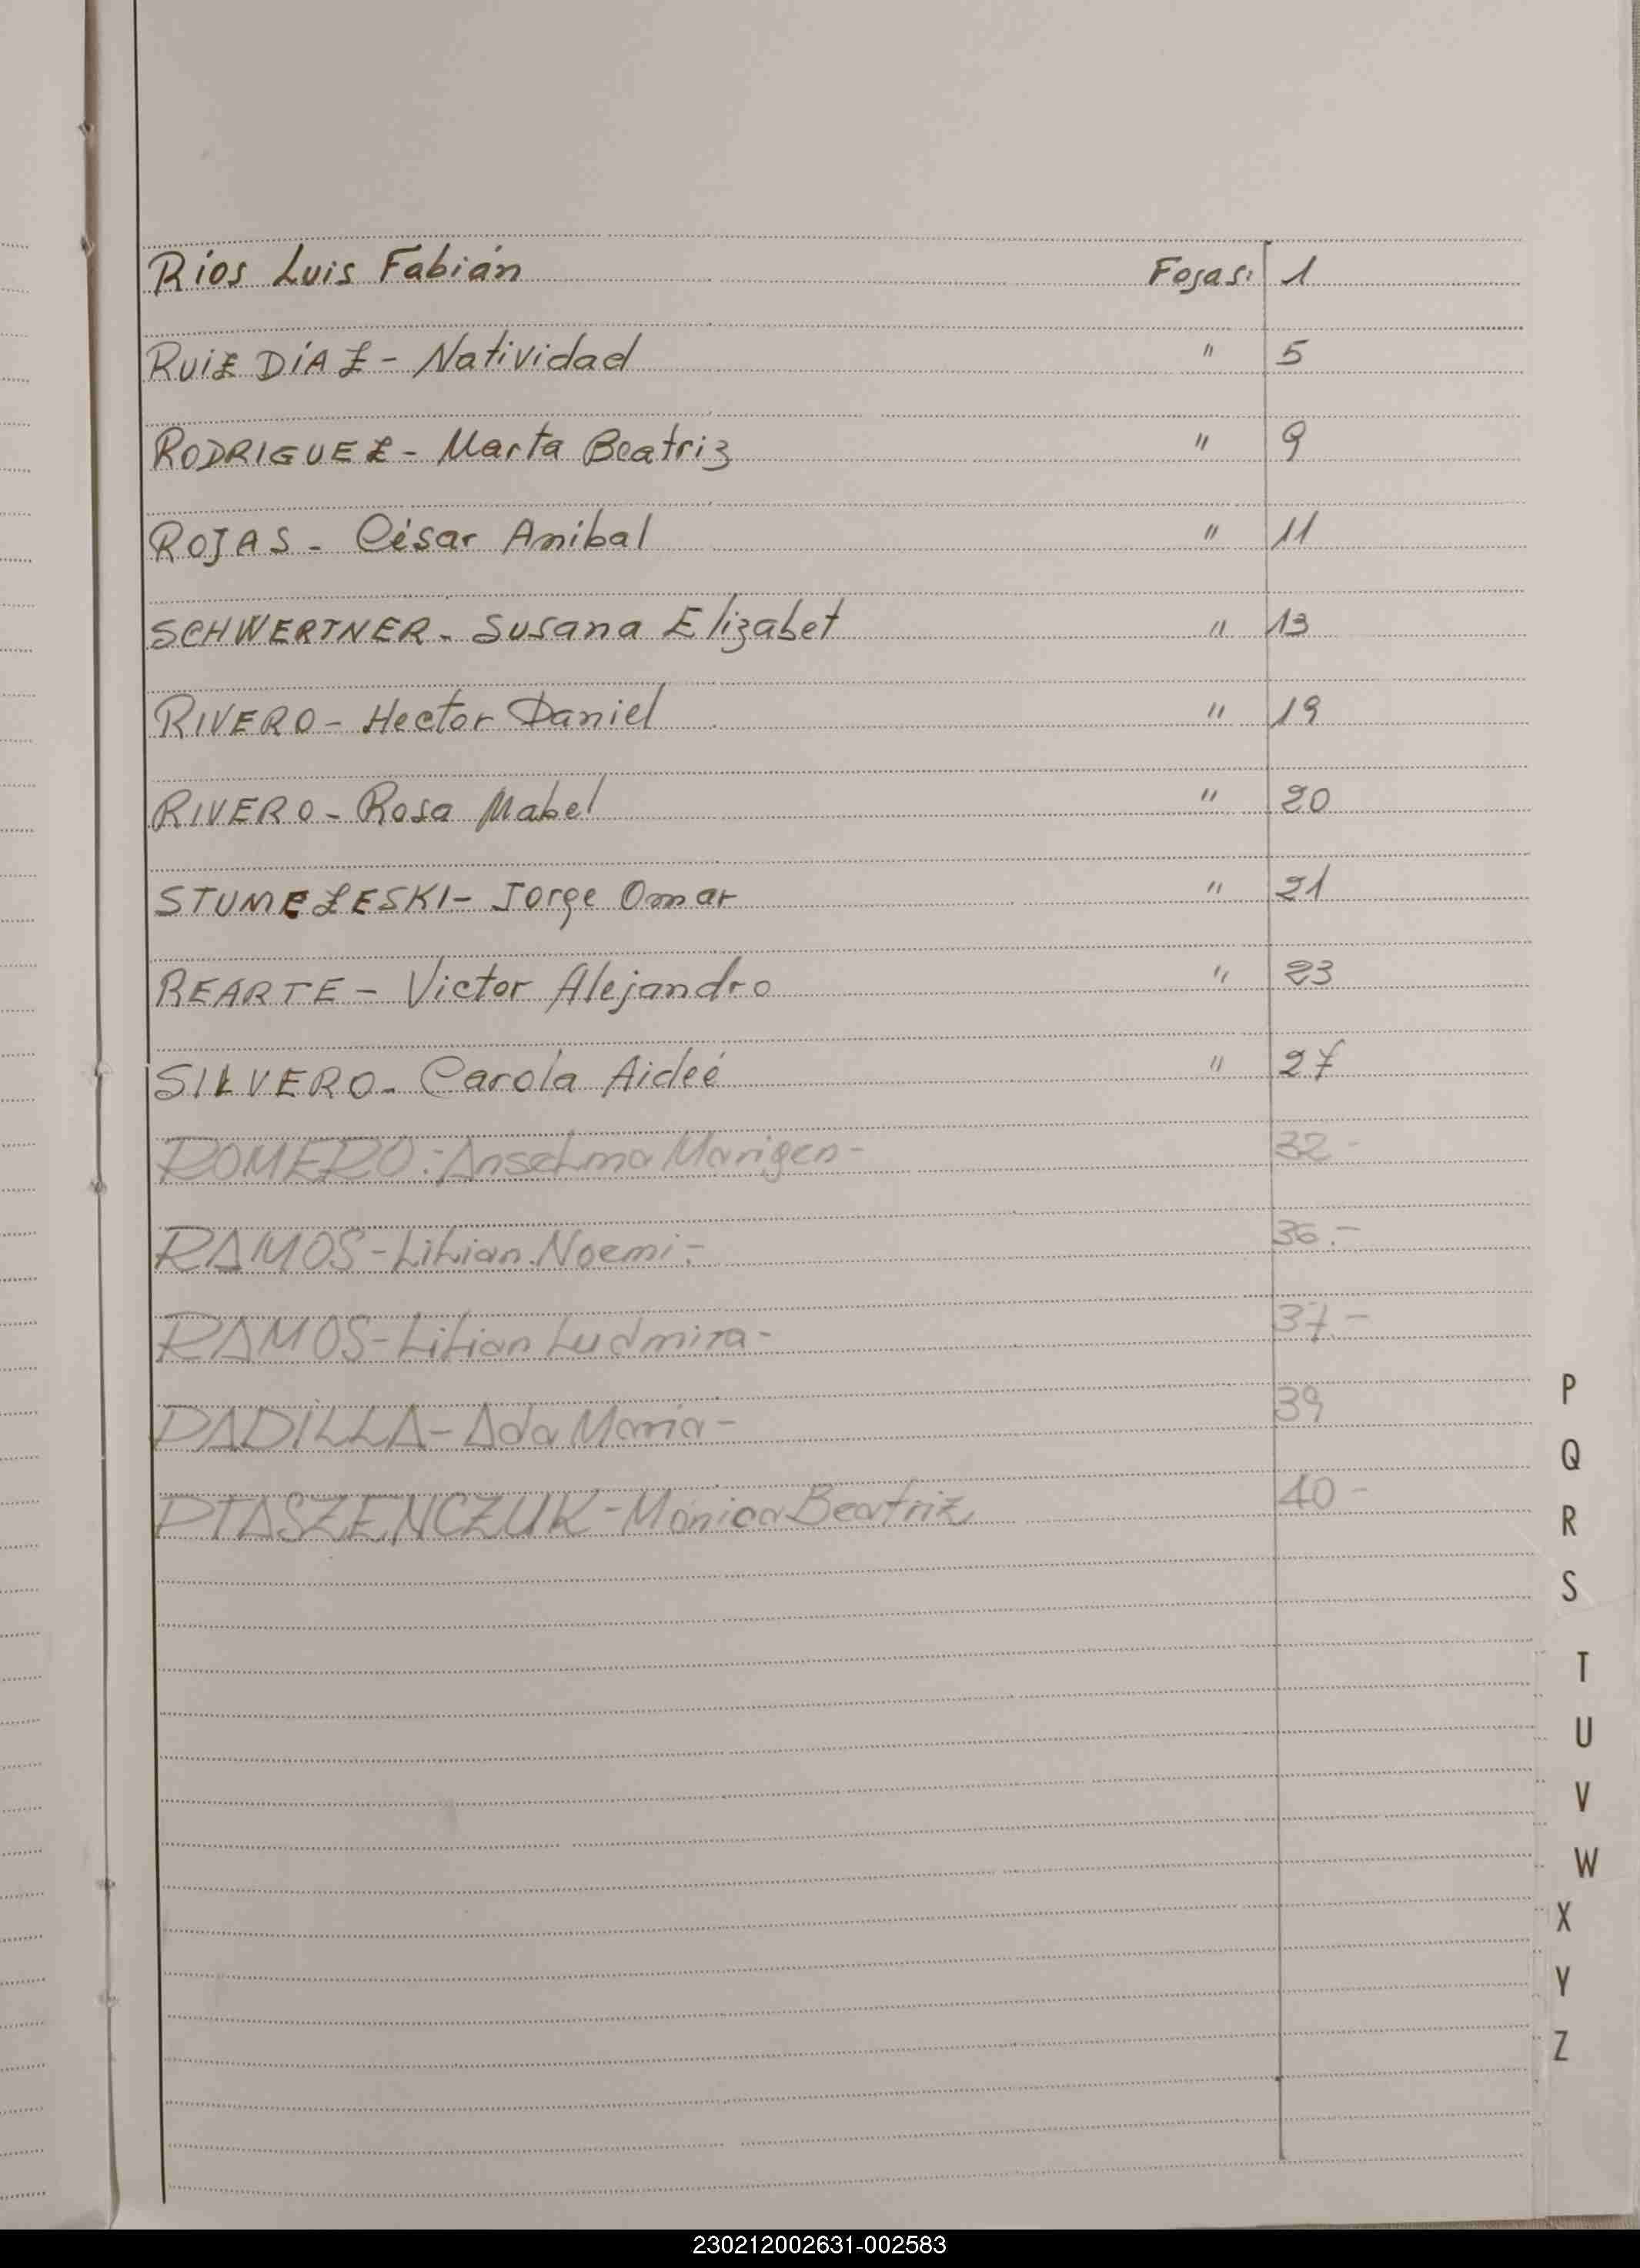 Ríos Luis Fabián Fojas: 1
RUIZ DÍAZ - Natividad " 5
RODRIGUEZ - Marta Beatriz " 9
ROJAS - César Anibal " 11
SCHWERTNER - Susana Elizabet " 13
RIVERO - Hector Daniel " 19
RIVERO - Rosa Mabel " 20
STUMEZESKI - Jorge Omar " 21
REARTE - Victor Alejandro " 23
SILVERO - Carola Aideé " 27
ROMERO:- Anselma Marigen - 32 -
RAMOS - Lilian Noemi - 36.-
RAMOS - Lilian Ludmira - 37.-
PADILLA - Ada Maria - 39
PTASZENCZUK - Mónica Beatriz 40 -
P
Q
R
S
T
U
V
W
X
Y
Z
230212002631-002583